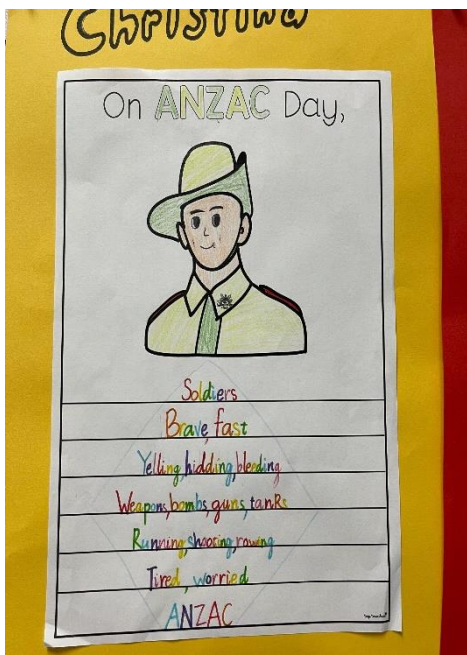 Christina
On ANZAC Day,
Soldiers
Brave, fast
Yelling, hidding, bleeding
Weapons, bombs, guns, tanks
Running, shooting, rowing
Tired, worried
ANZAC